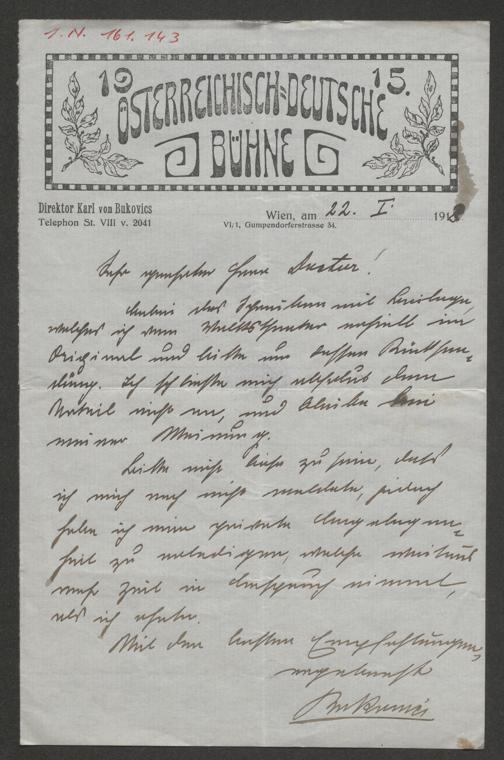 I. N. 161.143
19 15.
ÖSTERREICHISCH-DEUTSCHE
BÜHNE
Direktor Karl von Bukovics
Telephon St. VIII v. 2041
Wien, am 22. I. 191
VI/1, Gumpendorferstrasse 34.
Sehr geehrter Herr Doctor!
Anbei das Schreiben mit Beilage,
welches ich vom Volkstheater erhielt im
Original und bitte um dessen Rücksen-
dung. Ich schließe mich absolut dem
Urteil nicht an, und bleibe bei
meiner Meinung.
Bitte nicht böse zu sein, daß
ich mich noch nicht meldete, jedoch
habe ich eine private Angelegen-
heit zu erledigen, welche weitaus
mehr Zeit in Anspruch nimmt,
als ich ahnte.
Mit den besten Empfehlungen,
ergebenst
Bukovics